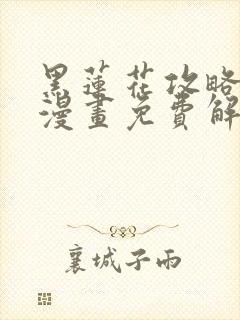 黑蓮花攻略
漫畫免費解
襄城子雨